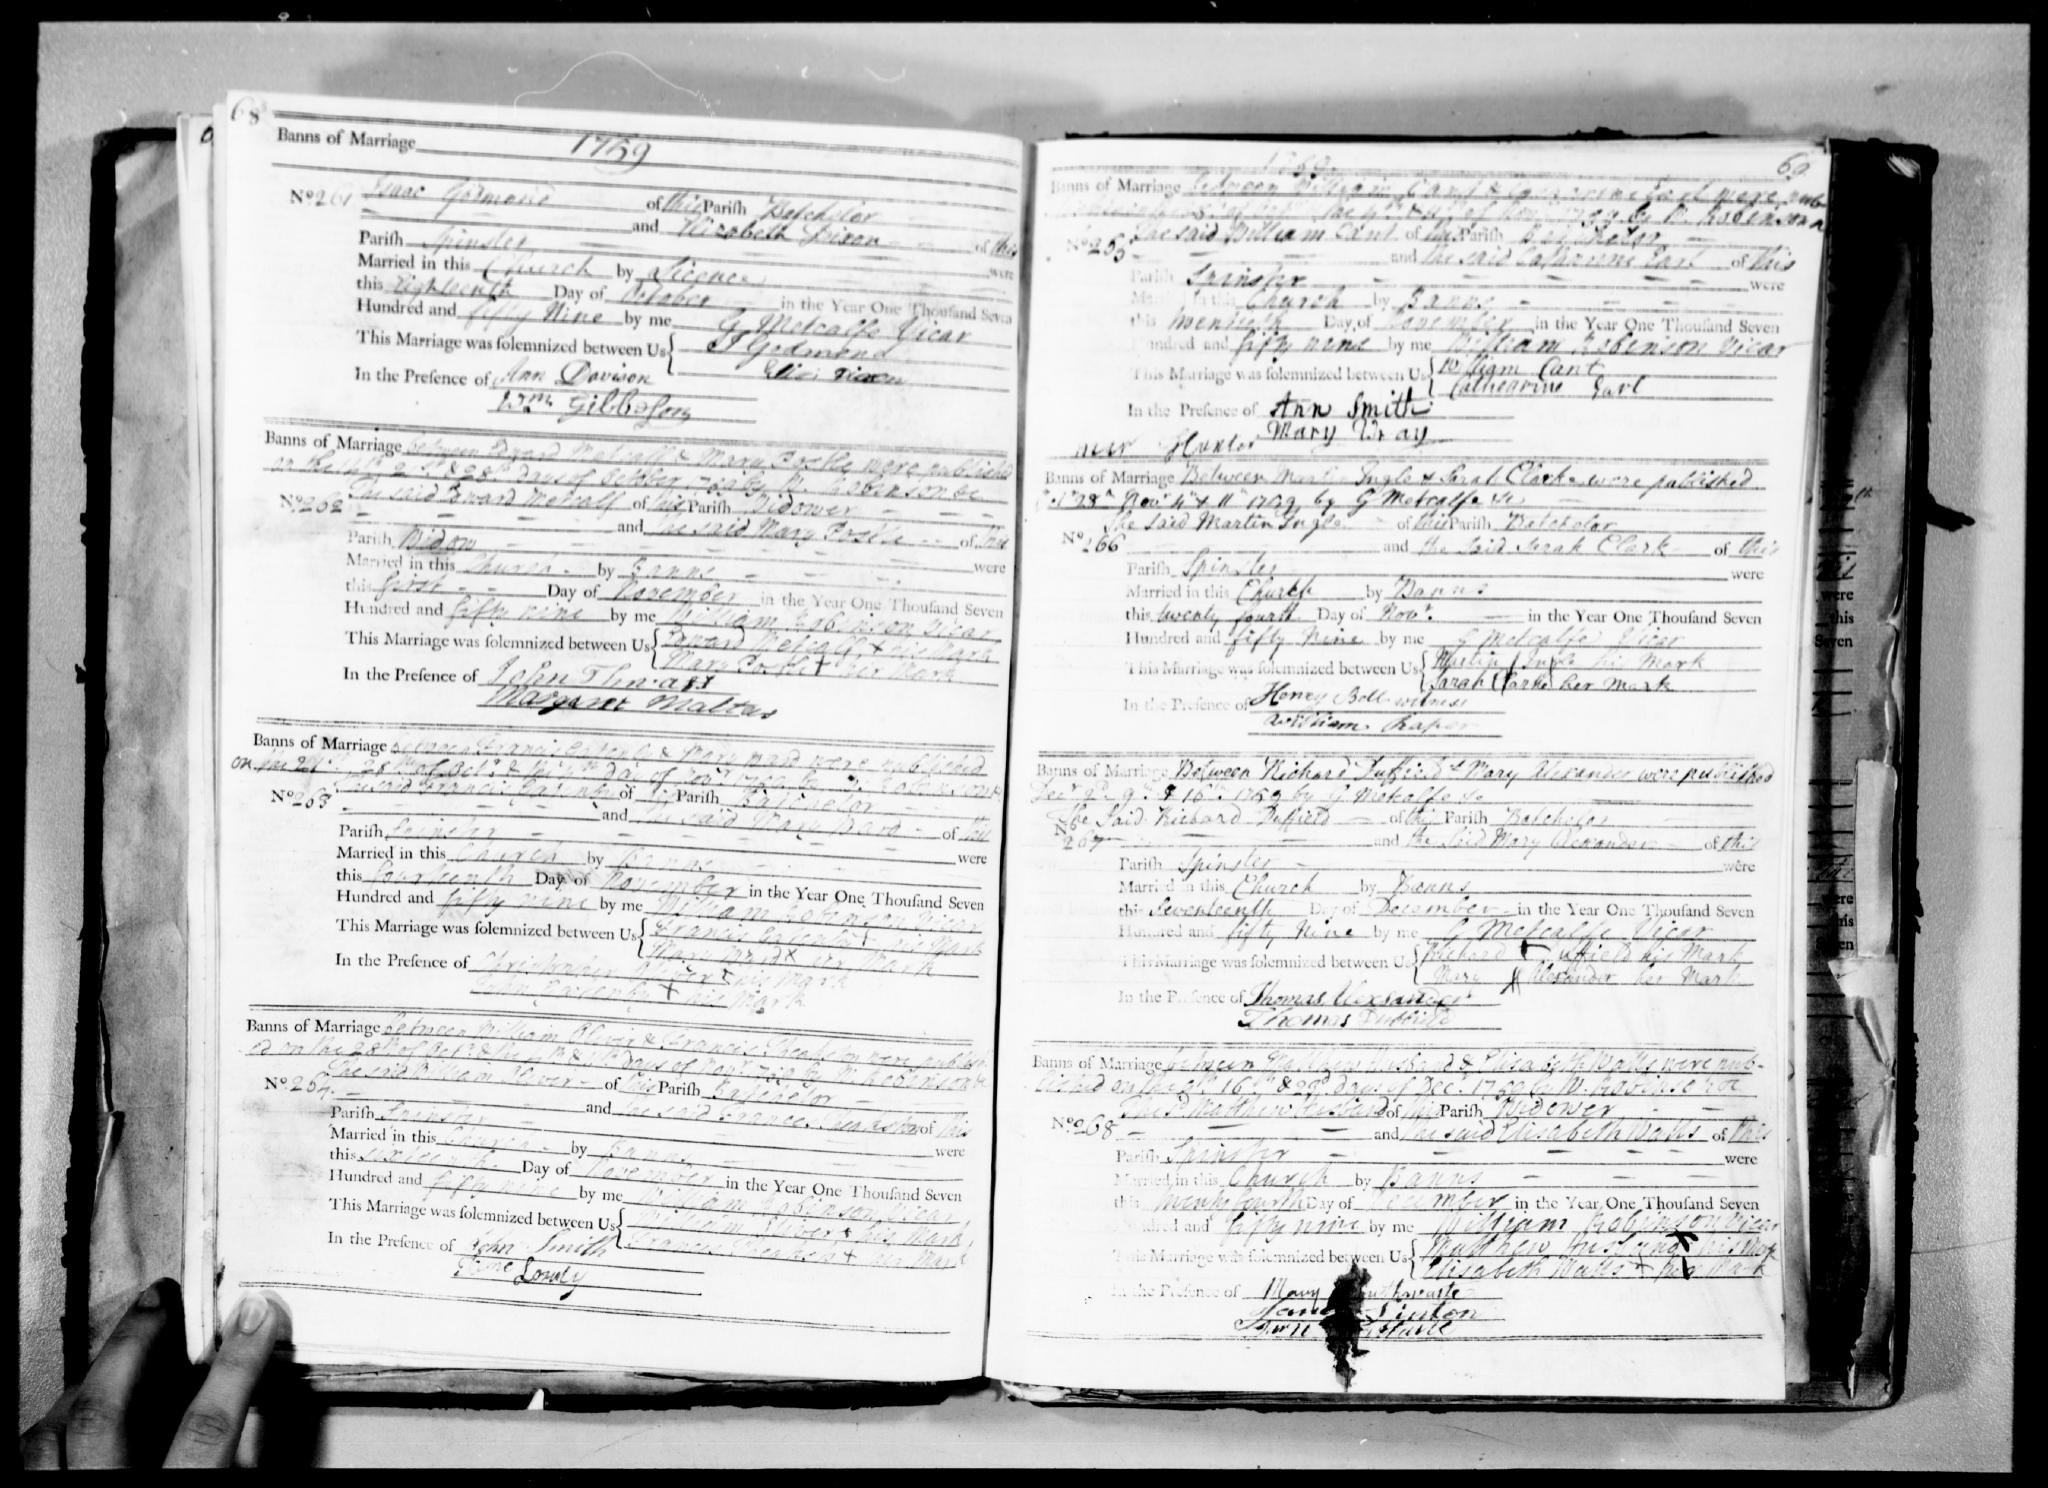 68
Banns of Marriage 1759
No. 261 Isaac Godmond of this Parish Batchelor
and Elizabeth Dixon of this
Parish Spinster were
Married in this Church by Licence
this Eighteenth Day of October in the Year One Thousand Seven
Hundred and fifty Nine by me G Metcalfe Vicar
This Marriage was solemnized between Us I Godmond
Eliz: Dixon
In the Presence of Ann Davison
Wm Gibbeson
Banns of Marriage between Edward Metcalf & Mary Postle were published
on the 14th 21st & 28th days of October 1759 by W. Robinson
No. 262 The said Edward Metcalf of this Parish Widower
and the said Mary Postle of this
Parish Widow
Married in this Church by Banns were
this first Day of November in the Year One Thousand Seven
Hundred and fifty nine by me William Robinson Vicar
This Marriage was solemnized between Us Edward Metcalf + his Mark
Mary Postle + her Mark
In the Presence of John Thwaits
Margaret Maltus
Banns of Marriage between Francis & Mary Ward were published
on the 21st 28th of Octr & the 4th day of Novr 1759 by W. Robinson
No. 263 The said Francis of this Parish Batchelor
and the said Mary Ward of this
Parish Spinster
Married in this Church by Banns were
this fourteenth Day of November in the Year One Thousand Seven
Hundred and fifty nine by me William Robinson Vicar
This Marriage was solemnized between Us Francis + his Mark
Mary Ward + her Mark
In the Presence of Christopher Oliver + his Mark
John + his Mark
Banns of Marriage between William Oliver & Frances Theakston were publish
ed on the 28th of Octr & the 4th & 11th days of Novr 1759 by W. Robinson
No. 264 The said William Oliver of this Parish Batchelor
and the said Frances Theakston of this
Parish Spinster
Married in this Church by Banns were
this sixteenth Day of November in the Year One Thousand Seven
Hundred and fifty nine by me William Robinson Vicar
This Marriage was solemnized between Us William Oliver + his Mark
Frances Theakston + her Mark
In the Presence of John Smith
Jane Lowly
1759 69
Banns of Marriage between William Cant & Catharine Earl were pub
the 4th & 11th of Novr 1759 by W. Robinson
No. 265 The said William Cant of this Parish Batchelor
and the said Catharine Earl of this
Parish Spinster were
Married in this Church by Banns
this Day of November in the Year One Thousand Seven
Hundred and fifty nine by me William Robinson Vicar
This Marriage was solemnized between Us William Cant
Catharine Earl
In the Presence of Ann Smith
Mary Wray
Hunter
Banns of Marriage Between Martin Ingle & Sarah Clark were published
Oct 28th Novr 4th & 11th 1759 by G Metcalfe &c
The Said Martin Ingle of this Parish Batchelor
No. 266 and the said Sarah Clark of this
Parish Spinster were
Married in this Church by Banns
this twenty fourth Day of Novr. in the Year One Thousand Seven
Hundred and fifty Nine by me G Metcalfe Vicar
This Marriage was solemnized between Us Martin Ingle his Mark
Sarah Clarke her Mark
In the Presence of Henry Bell witness
William Chaper
Banns of Marriage Between Richard Duffield & Mary Alexander were published
Decr 2d 9th & 16th 1759 by G Metcalfe &c
The Said Richard Duffield of this Parish Batchelor
No 267 and the Said Mary Alexander of this
Parish Spinster were
Married in this Church by Banns
this Seventeenth Day of December in the Year One Thousand Seven
Hundred and fifty Nine by me G Metcalfe Vicar
This Marriage was solemnized between Us Richard + Duffield his Mark
Mary X Alexander her Mark
In the Presence of Thomas Alexander
Thomas
Banns of Marriage between Matthew Husband & Elisabeth Watts were pub-
lished on the 9th 16th & 23d days of Decr. 1759 by W. Robinson
The sd. Matthew Husband of this Parish Widower
No. 268 and the said Elisabeth Watts of this
Parish Spinster were
Married in this Church by Banns
this twenty fourth Day of December in the Year One Thousand Seven
Hundred and fifty nine by me William Robinson Vicar
This Marriage was solemnized between Us Matthew Husband X his Mark
Elisabeth Watts + her Mark
In the Presence of Mary
Linton